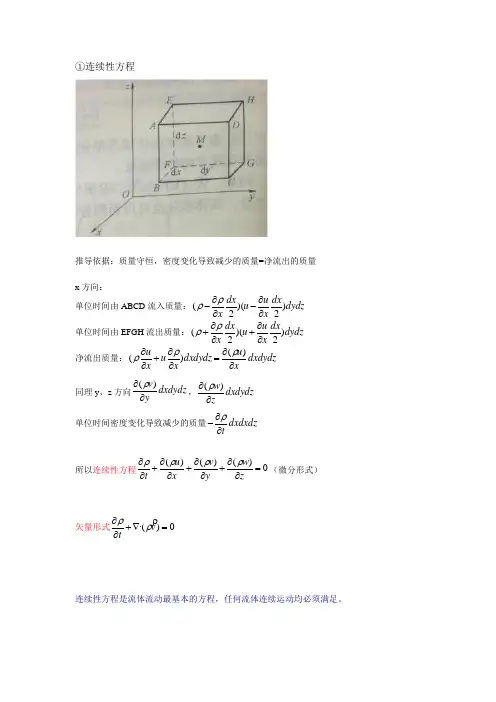 ①连续性方程
z
E
H
A
D
dz
M
F
G
dx
dy
B
C
O
y
x
推导依据：质量守恒，密度变化导致减少的质量=净流出的质量
x 方向：
单位时间由 ABCD 流入质量：(ρ − ∂ρ/∂x dx/2)(u − ∂u/∂x dx/2)dydz
单位时间由 EFGH 流出质量：(ρ + ∂ρ/∂x dx/2)(u + ∂u/∂x dx/2)dydz
净流出质量：(ρ ∂u/∂x + u ∂ρ/∂x)dxdydz = ∂(ρu)/∂x dxdydz
同理 y、z 方向 ∂(ρv)/∂y dxdydz，∂(ρw)/∂z dxdydz
单位时间密度变化导致减少的质量 − ∂ρ/∂t dxdxdz
所以连续性方程 ∂ρ/∂t + ∂(ρu)/∂x + ∂(ρv)/∂y + ∂(ρw)/∂z = 0（微分形式）
矢量形式 ∂ρ/∂t + ∇·(ρv) = 0
连续性方程是流体流动最基本的方程，任何流体连续运动均必须满足。